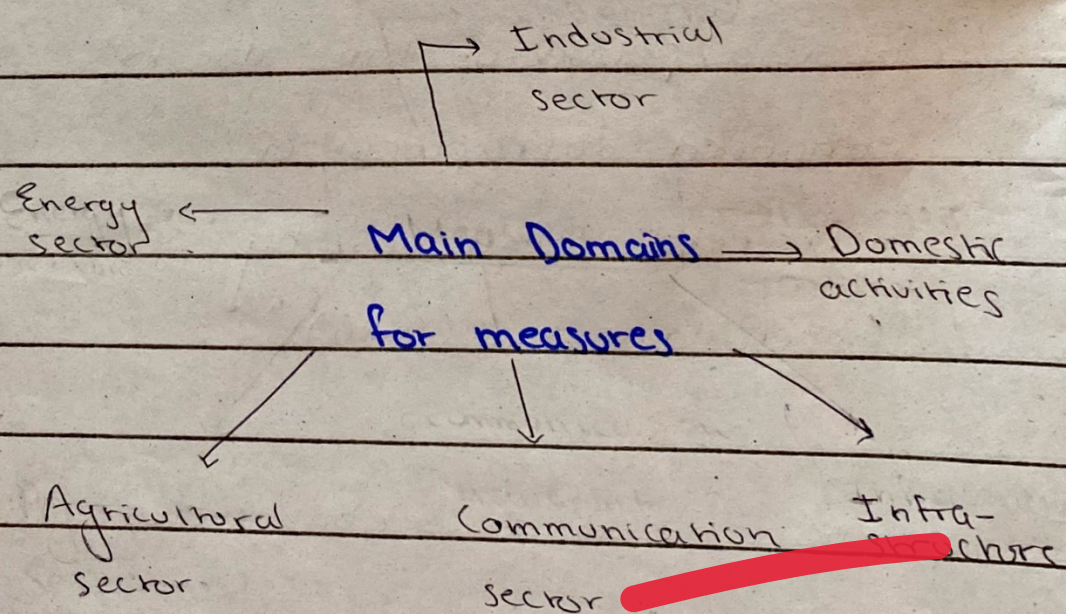 Industrial
sector
Energy
sector
Main Domains
for measures
Domestic
activities
Agricultural
sector
Communication
sector
Infra-
structure